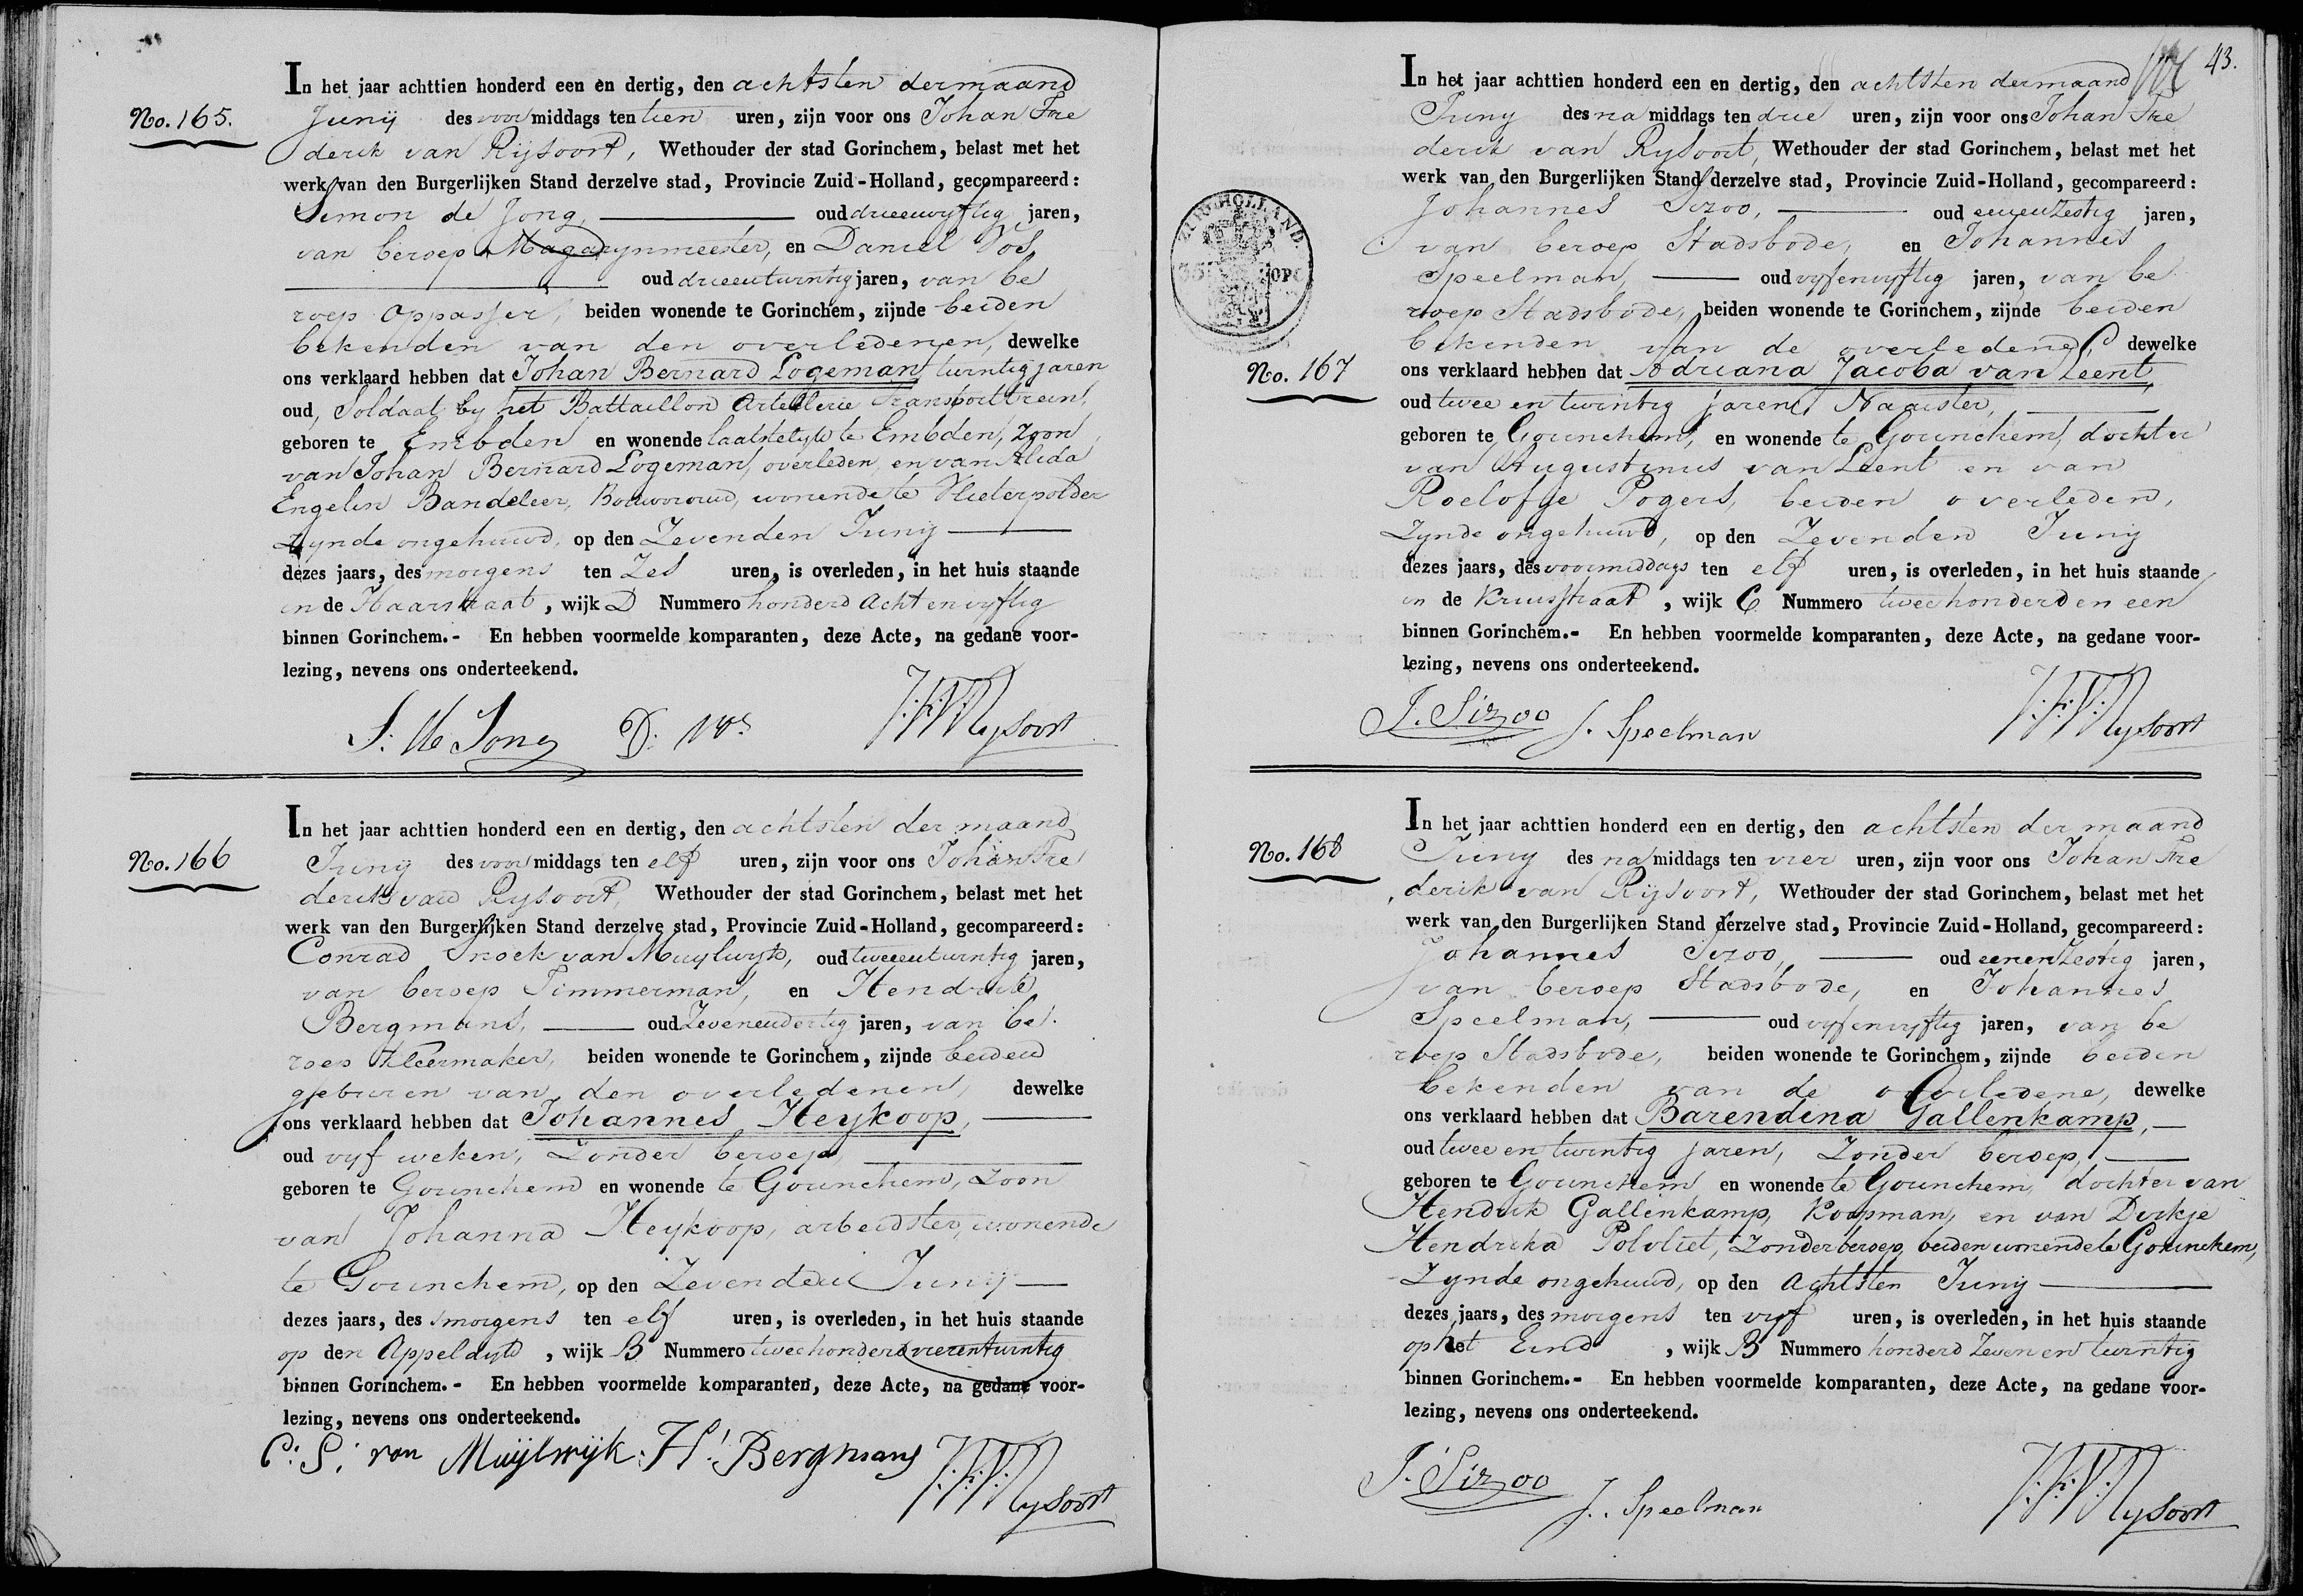 No. 165.
In het jaar achttien honderd een en dertig, den achtsten der maand
Junij des voormiddags ten tien uren, zijn voor ons Johan Fre
derik van Rijsoort, Wethouder der stad Gorinchem, belast met het
werk van den Burgerlijken Stand derzelve stad, Provincie Zuid-Holland, gecompareerd:
Simon de Jong, oud drieenvyftig jaren,
van beroep Magazynmeester, en Daniel Vos
oud drieentwintig jaren, van be
roep Oppasser, beiden wonende te Gorinchem, zijnde beiden
bekenden van den overledenen, dewelke
ons verklaard hebben dat Johan Bernard Logeman, twintig jaren
oud, Soldaat by het Battaillon Artellerie Transporttrein,
geboren te Embden en wonende laatstelyk te Embden, zoon
van Johan Bernard Logeman, overleden, en van Alida
Engelin Bandeleer, Bouwvrouw, wonende te Vleterpolder
Zynde ongehuwd, op den Zevenden Junij
dezes jaars, des morgens ten Zes uren, is overleden, in het huis staande
in de Haarstraat, wijk D Nummero honderd Acht en vyftig
binnen Gorinchem.- En hebben voormelde komparanten, deze Acte, na gedane voor-
lezing, nevens ons onderteekend.
S: de Jong D: Vos J:F:V:Rysoort
No. 166
In het jaar achttien honderd een en dertig, den achtsten der maand
Junij des voormiddags ten elf uren, zijn voor ons Johan Fre
derik van Rysoort, Wethouder der stad Gorinchem, belast met het
werk van den Burgerlijken Stand derzelve stad, Provincie Zuid-Holland, gecompareerd:
Conrad Snoek van Muylwyk, oud tweeentwintig jaren,
van beroep Timmerman, en Hendrik
Bergmans, oud Zevenendertig jaren, van be
roep Kleermaker, beiden wonende te Gorinchem, zijnde beiden
geburen van den overledenen, dewelke
ons verklaard hebben dat Johannes Heykoop,
oud vyf weken, Zonder beroep
geboren te Gorinchem en wonende te Gorinchem, Zoon
van Johanna Heykoop, arbeidster, wonende
te Gorinchem, op den Zevenden Junij
dezes jaars, des smorgens ten elf uren, is overleden, in het huis staande
op den Appeldyk, wijk B Nummero tweehonderd vierentwintig
binnen Gorinchem.- En hebben voormelde komparanten, deze Acte, na gedane voor-
lezing, nevens ons onderteekend.
C: S: van Muijlwijk. H: Bergmans J:F:V:Rysoort
43.
ZUID-HOLLAND
No. 167
In het jaar achttien honderd een en dertig, den achtsten der maand
Juny des na middags ten drie uren, zijn voor ons Johan Fre
derik van Rysoort, Wethouder der stad Gorinchem, belast met het
werk van den Burgerlijken Stand derzelve stad, Provincie Zuid-Holland, gecompareerd:
Johannes Sizoo, oud eenenzestig jaren,
van beroep Stadsbode, en Johannes
Speelman, oud vyfenvyftig jaren, van be
roep Stadsbode, beiden wonende te Gorinchem, zijnde beiden
bekenden van de overledene, dewelke
ons verklaard hebben dat Adriana Jacoba van Leent,
oud twee en twintig jaren, Naaister,
geboren te Gorinchem, en wonende te Gorinchem, dochter
van Augustinus van Leent en van
Roelofje Pogers, beiden overleden,
Zynde ongehuwd, op den Zevenden Juny
dezes jaars, des voormiddags ten elf uren, is overleden, in het huis staande
in de Kruisstraat, wijk C Nummero twee honderd en een
binnen Gorinchem.- En hebben voormelde komparanten, deze Acte, na gedane voor-
lezing, nevens ons onderteekend.
J. Sizoo J. Speelman J:F:V:Rysoort
No. 168
In het jaar achttien honderd een en dertig, den achtsten der maand
Juny des na middags ten vier uren, zijn voor ons Johan Fre
derik van Rijsoort, Wethouder der stad Gorinchem, belast met het
werk van den Burgerlijken Stand derzelve stad, Provincie Zuid-Holland, gecompareerd:
Johannes Sizoo, oud eenenzestig jaren,
van beroep Stadsbode, en Johannes
Speelman, oud vyfenvyftig jaren, van be
roep Stadsbode, beiden wonende te Gorinchem, zijnde beiden
bekenden van de overledene, dewelke
ons verklaard hebben dat Barendina Gallenkamp,
oud twee en twintig jaren, Zonder beroep,
geboren te Gorinchem en wonende te Gorinchem, dochter van
Hendrik Gallenkamp, Koopman, en van Dirkje
Hendrika Polvliet, Zonder beroep, beiden wonende te Gorinchem,
Zynde ongehuwd, op den Achtsten Juny
dezes jaars, des morgens ten vyf uren, is overleden, in het huis staande
op het Eind, wijk B Nummero honderd Zeven en twintig
binnen Gorinchem.- En hebben voormelde komparanten, deze Acte, na gedane voor-
lezing, nevens ons onderteekend.
J. Sizoo J. Speelman J:F:V:Rysoort